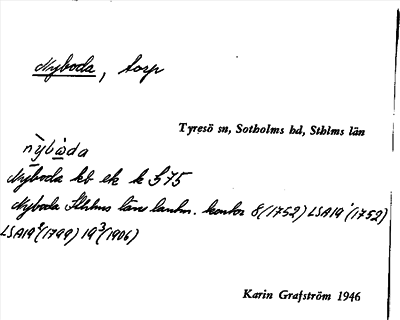 Nyboda, torp
Tyresö sn, Sotholms hd, Sthlms län
nỳbọ̀da
Nyboda kb ek k S75
Nyboda Sthlms läns lantm. kontor 8 (1752) LSA19¹(1752)
LSA19²(1799) 19³(1906)
Karin Grafström 1946